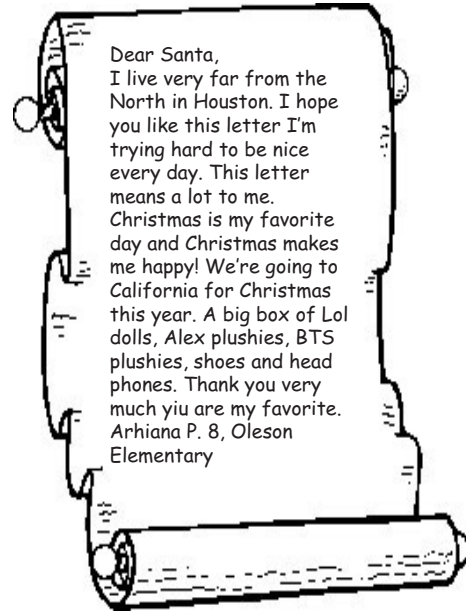 Dear Santa,
I live very far from the
North in Houston. I hope
you like this letter I'm
trying hard to be nice
every day. This letter
means a lot to me.
Christmas is my favorite
day and Christmas makes
me happy! We're going to
California for Christmas
this year. A big box of Lol
dolls, Alex plushies, BTS
plushies, shoes and head
phones. Thank you very
much yiu are my favorite.
Arhiana P. 8, Oleson
Elementary